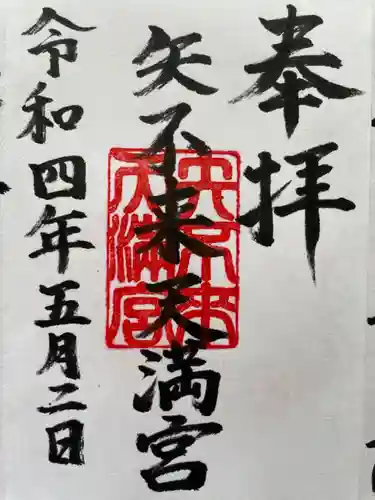 奉拝
矢不来天満宮
矢不来天満宮
令和四年五月二日